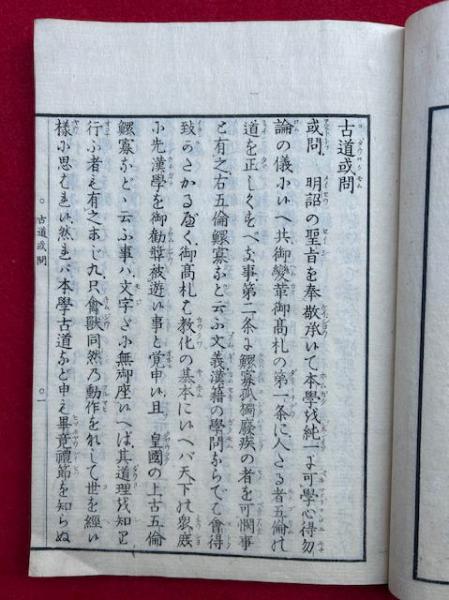 古道或問
或問、明詔の聖旨を奉敬承いて本學を純一に可學心得勿
論の儀小いへ共御變華御髙札の第一条に人たる者五倫の
道を正しくもへき事第二条に鰥寡孤獨廢疾の者を可憫事
と有之、右五倫鰥寡など云ふ文義漢籍の學問ならでも會得
致さかる
御髙札も教化の基本にいへバ天下の
小先漢學を御勸
被遊い事と覚申い、且、皇國の上古五倫
鰥寡など云ふ事ハ、文字さ小無御座いへば其道理を知
行ふ者も有之まじ九只禽獸同然乃動作をれして世を經い
様小思はれい、然れバ本學古道など申
畢竟禮節を知らぬ
古道或問